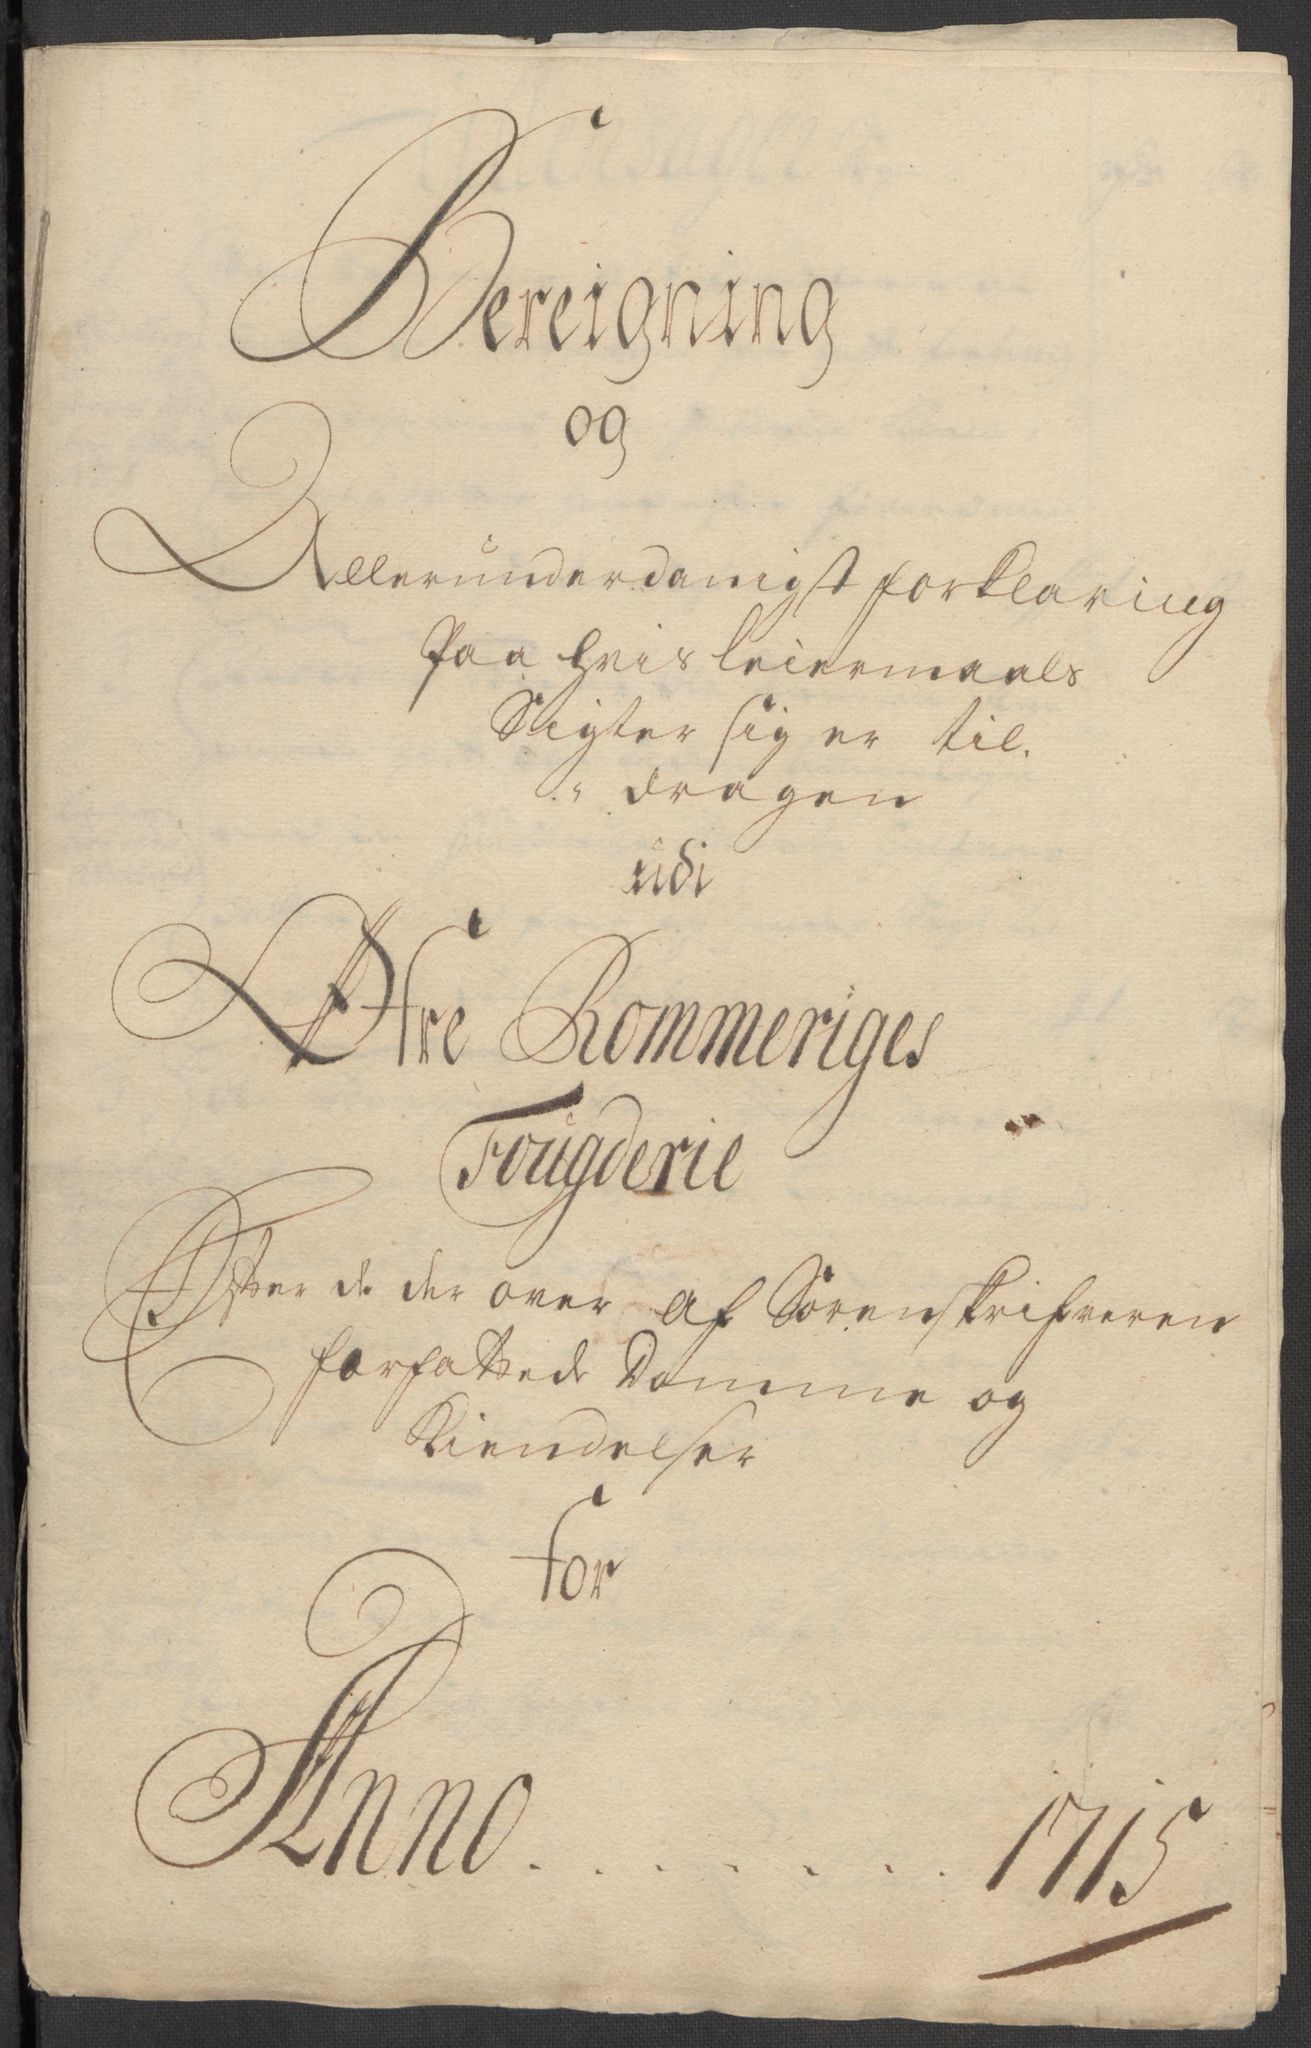 Bereigning
og
Allerunderdanigst forklaring
Paa hvis leiermaals
Sigter sig er til.
dragen
udi
Øfre Rommeriges
Fougderie
Efter de der over af Sorenskrifveren
forfattede Domme og
Kiendelser
for
Anno . . . . . . . 1715